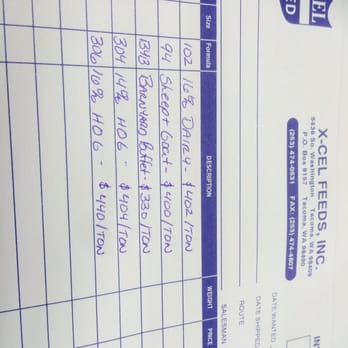 CEL
ED
X-CEL FEEDS, INC.
5436 So. Washington Tacoma, WA 98409
P.O. Box 9157 Tacoma, WA 98490
(253) 474-0531 FAX: (253) 474-4607
IN
DATE WANTED
DATE SHIPPED
ROUTE
SALESMAN
Size Formula DESCRIPTION WEIGHT PRICE
102 16% DAIRY - $402/TON
94 Sheep+Goat - $400/TON
1343 Barnyard Buffet - $330/TON
304 14% HOG - $404/TON
306 16% HOG - $440/TON